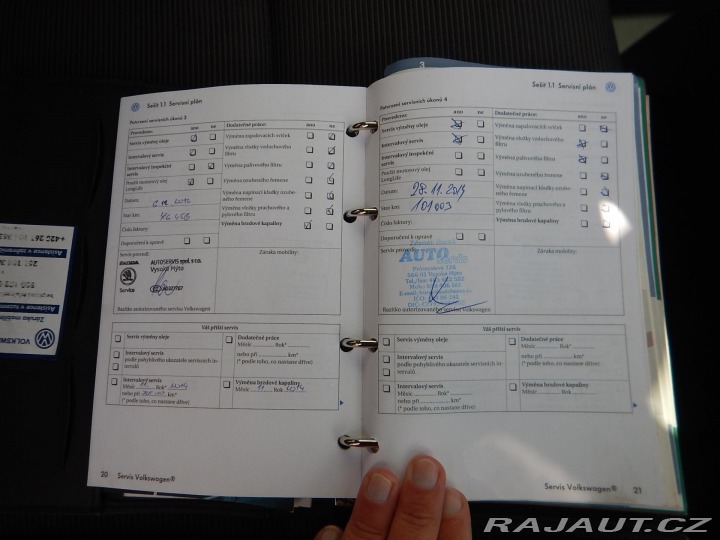 3
Sešit 1.1 Servisní plán
Potvrzení servisních úkonů 3
Provedeno:
ano
ne
Dodatečné práce:
ano
ne
Servis výměny oleje
Výměna zapalovacích svíček
Intervalový servis
Výměna vložky vzduchového
filtru
Intervalový inspekční
servis
Výměna palivového filtru
Použit motorový olej
LongLife
Výměna ozubeného řemene
Datum:
Výměna napínací kladky ozube-
ného řemene
Stav km:
Výměna prachového a
pylového filtru
Číslo faktury:
Výměna brzdové kapaliny
Doporučení k opravě
Servis provedl:
Záruka mobility:
AUTOSERVIS spol. s r.o.
Vysoké Mýto
Service
Razítko autorizovaného servisu Volkswagen
Váš příští servis
Servis výměny oleje
Dodatečné práce
Měsíc Rok*
nebo při km*
(* podle toho, co nastane dříve)
Intervalový servis
podle pohyblivého ukazatele servisních in-
tervalů
Intervalový servis
Měsíc Rok*
nebo při km*
(* podle toho, co nastane dříve)
Výměna brzdové kapaliny
Měsíc 11 Rok 2014
20 Servis Volkswagen®
Sešit 1.1 Servisní plán
Potvrzení servisních úkonů 4
Provedeno:
ano
ne
Dodatečné práce:
ano
ne
Servis výměny oleje
Výměna zapalovacích svíček
Intervalový servis
Výměna vložky vzduchového
filtru
Intervalový inspekční
servis
Výměna palivového filtru
Použit motorový olej
LongLife
Výměna ozubeného řemene
Datum: 28.11.2013
Výměna napínací kladky ozube-
ného řemene
Stav km: 101 003
Výměna prachového a
pylového filtru
Číslo faktury:
Výměna brzdové kapaliny
Doporučení k opravě
Servis provedl:
Záruka mobility:
AUTO
servis
566 01 Vysoké Mýto
Razítko autorizovaného servisu Volkswagen
Váš příští servis
Servis výměny oleje
Dodatečné práce
Měsíc Rok*
nebo při km*
(* podle toho, co nastane dříve)
Intervalový servis
podle pohyblivého ukazatele servisních in-
tervalů
Intervalový servis
Měsíc Rok*
nebo při km*
(* podle toho, co nastane dříve)
Výměna brzdové kapaliny
Měsíc Rok
Servis Volkswagen® 21
Asistence v zahraničí
Záruka mobility
VOLKSW
RAJAUT.CZ